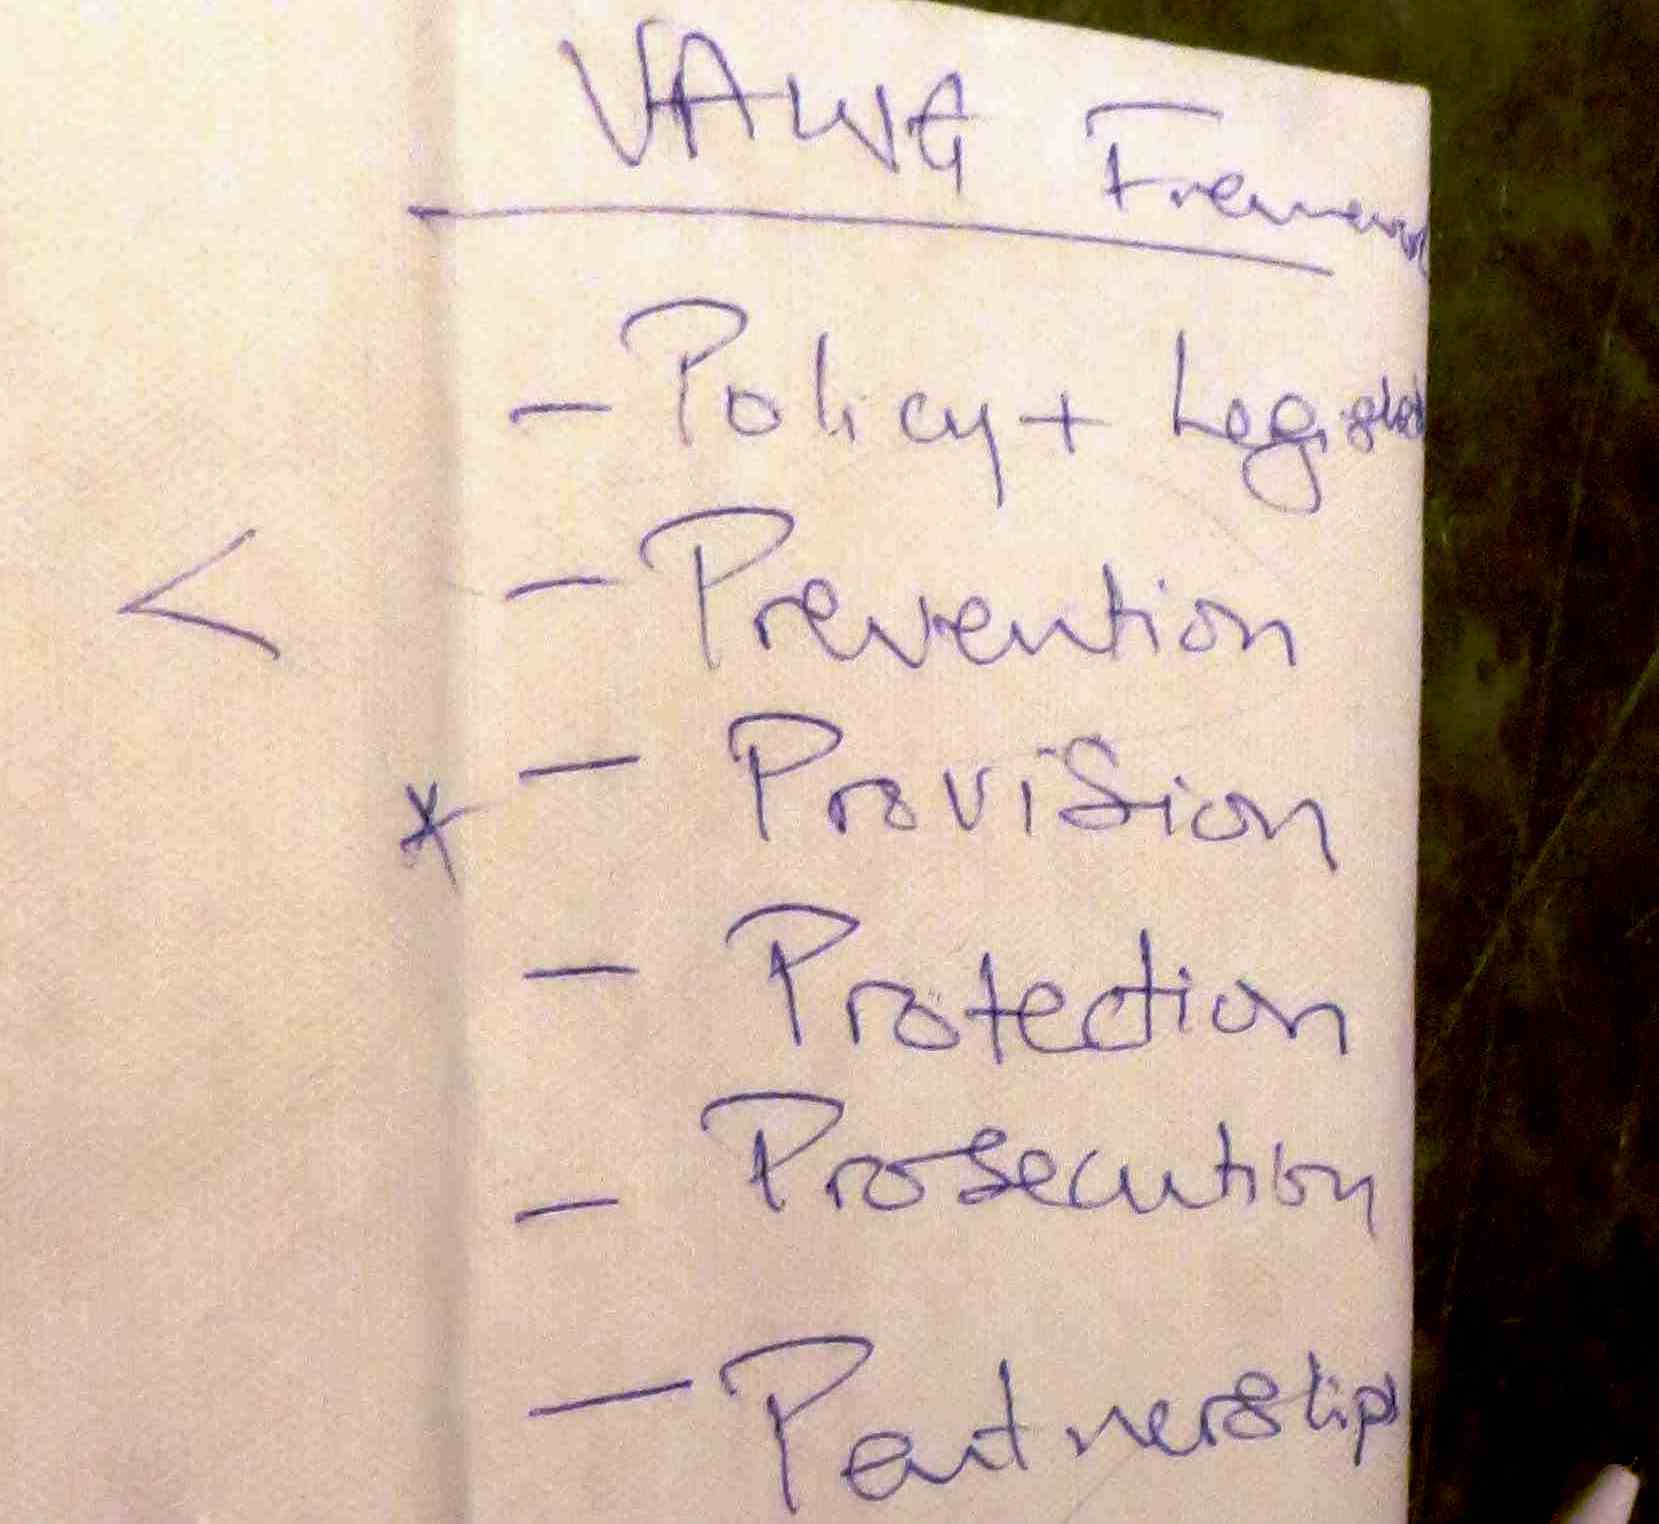 VAWG Framework
- Policy + Legislat
< - Prevention
* - Provision
- Protection
- Prosecution
- Partnerships